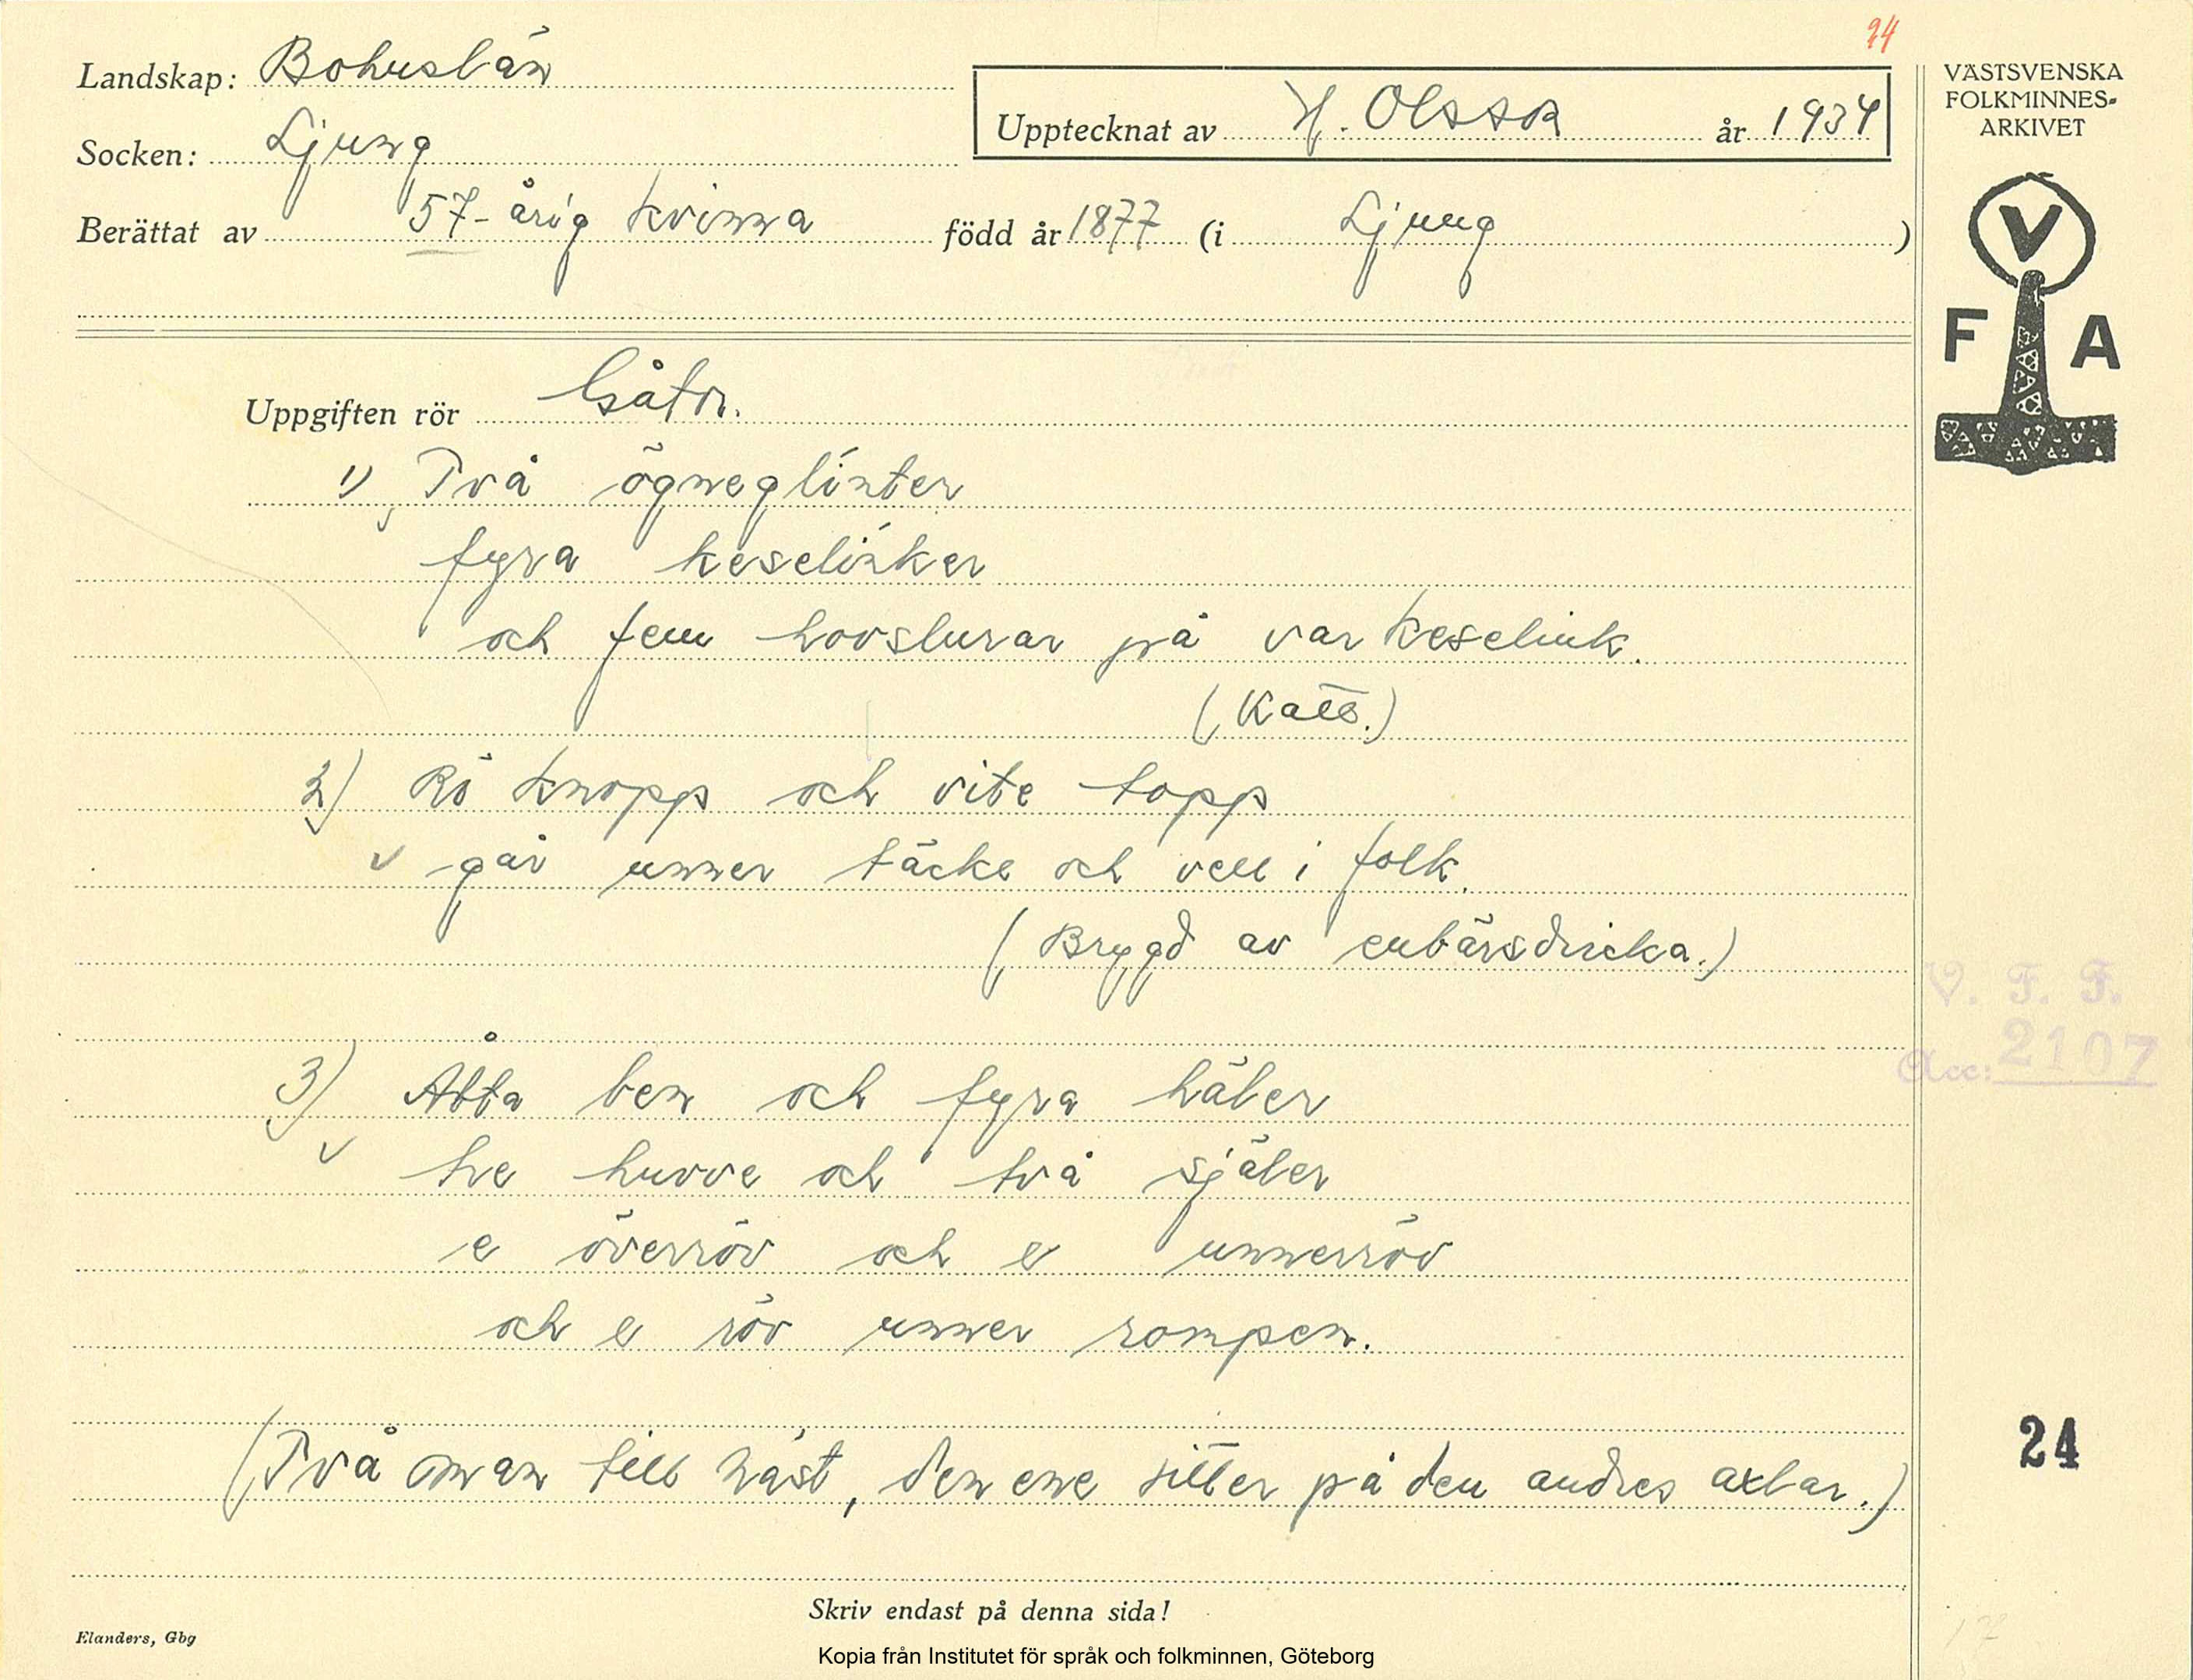 24
Landskap: Bohuslän
Upptecknat av H. Olsson år 1934
VÄSTSVENSKA
FOLKMINNES-
ARKIVET
Socken: Ljung
Berättat av 57-årig kvinna född år 1877 (i Ljung)
V
F A
Uppgiften rör Gåtor.
1) Två ögneglinter
fyra keselinker
och fem hovslurar på var keselink.
(Katt.)
2) Rö knopp och vite topp
går unner täcke och vell i folk.
(Brygd av enbärsdricka.)
V. F. F.
Acc: 2107
3) Åtta ben och fyra häler
tre huvve och två själer
e överröv och e unnerröv
och e röv unner rompen.
24
(Två män till häst, den ene sitter på den andres axlar.)
Skriv endast på denna sida!
Elanders, Gbg
Kopia från Institutet för språk och folkminnen, Göteborg